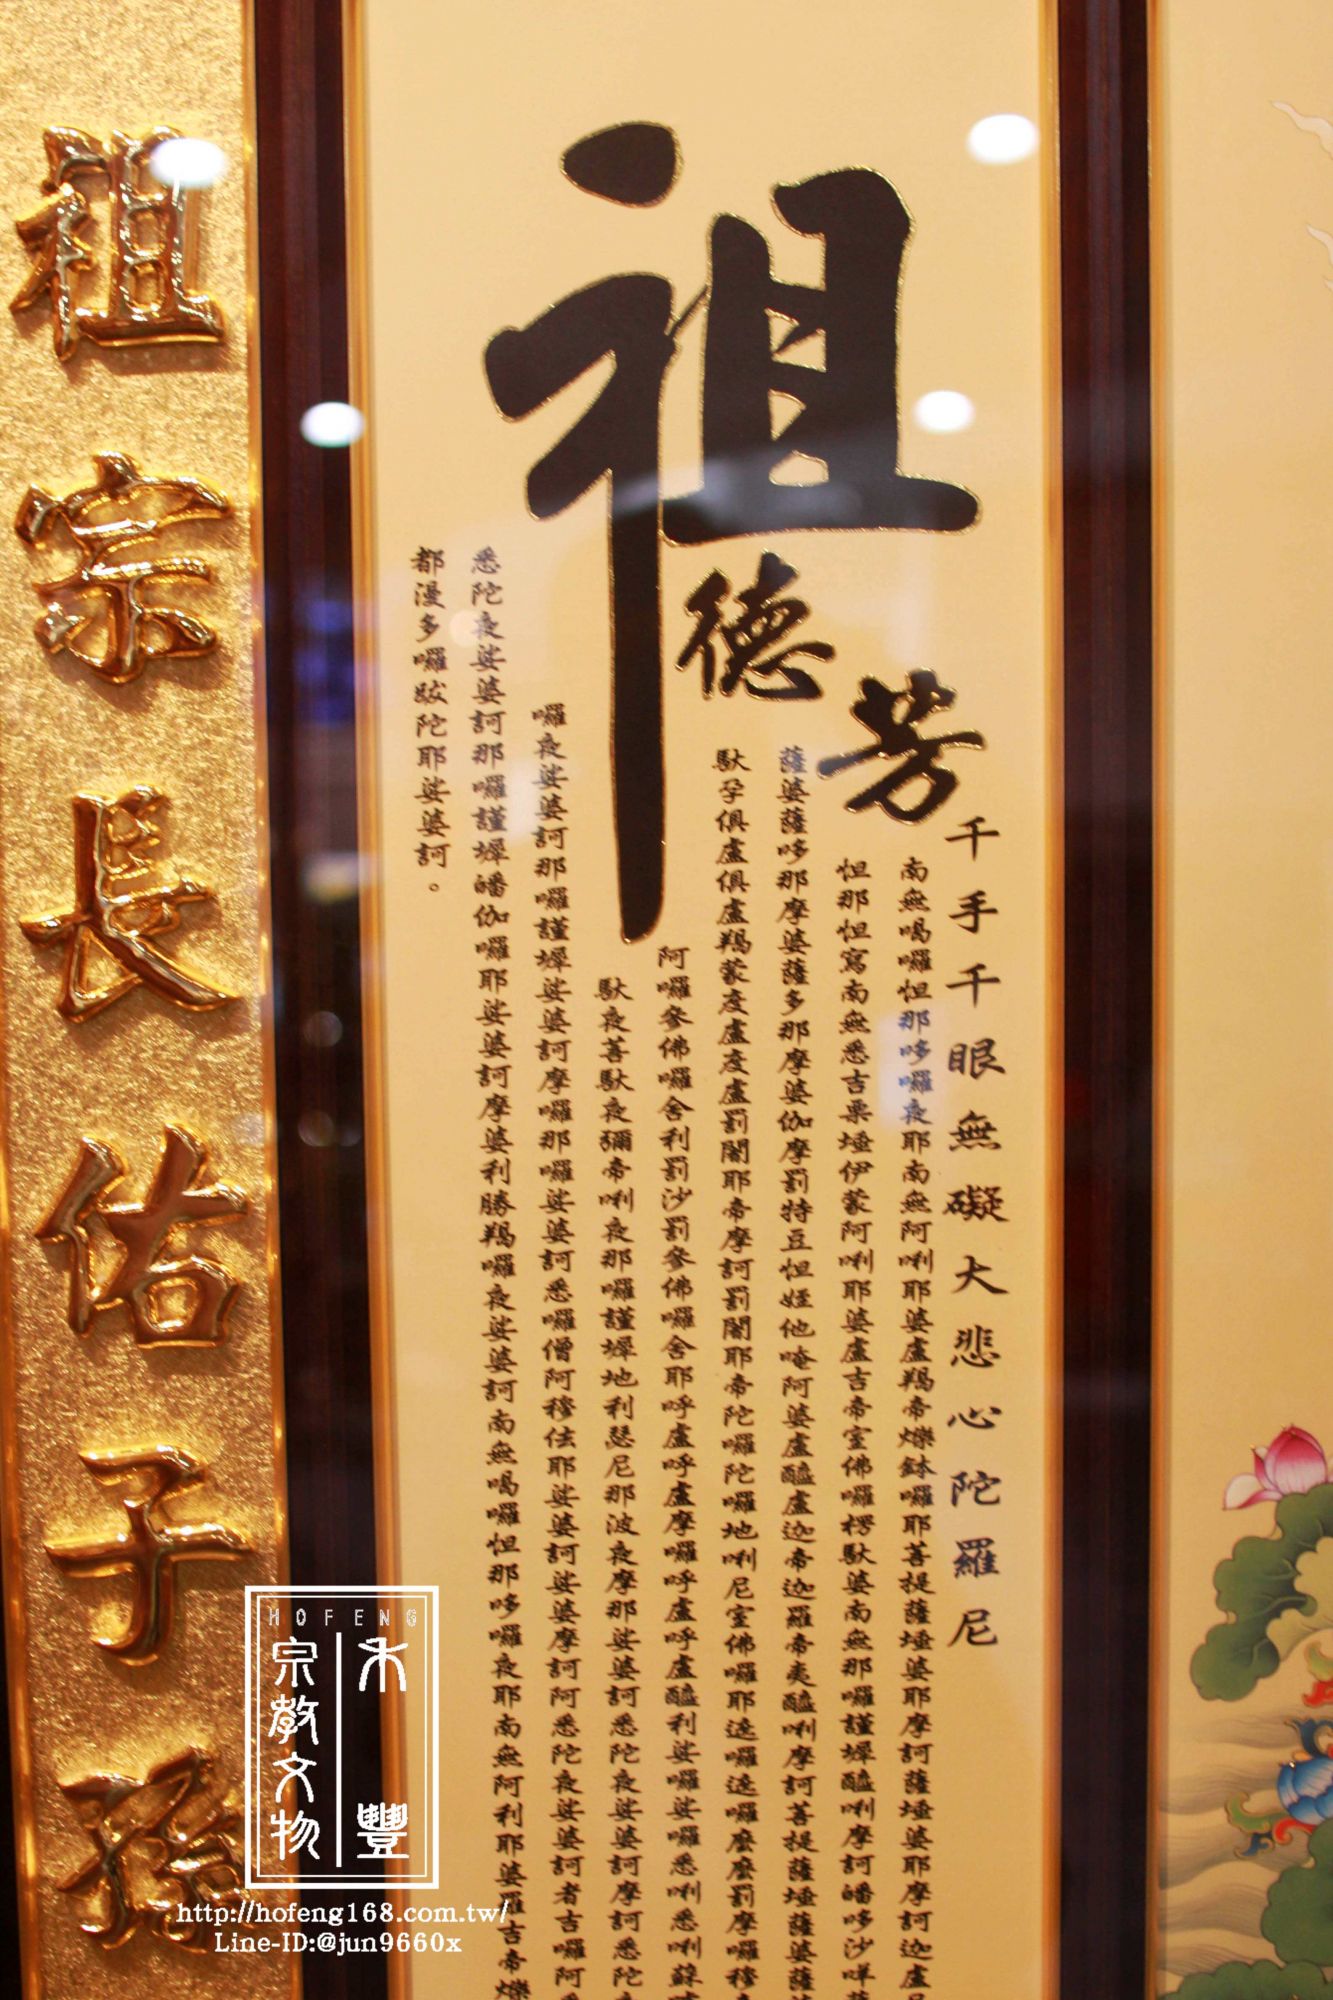 祖德芳
千手千眼無礙大悲心陀羅尼
南無喝囉怛那哆囉夜耶南無阿唎耶婆盧羯帝爍鉢囉耶菩提薩埵婆耶摩訶薩埵婆耶摩訶迦盧
怛那怛寫南無悉吉栗埵伊蒙阿唎耶婆盧吉帝室佛囉楞馱婆南無那囉謹墀醯唎摩訶皤哆沙咩
薩婆薩哆那摩婆薩多那摩婆伽摩罰特豆怛姪他唵阿婆盧醯盧迦帝迦羅帝夷醯唎摩訶菩提薩埵薩婆薩
馱孕俱盧俱盧羯蒙度盧度盧罰闍耶帝摩訶罰闍耶帝陀囉陀囉地唎尼室佛囉耶遮囉遮囉麼麼罰摩囉穆
阿囉參佛囉舍利罰沙罰參佛囉舍耶呼盧呼盧摩囉呼盧呼盧醯利娑囉娑囉悉唎悉唎蘇
馱夜菩馱夜彌帝唎夜那囉謹墀地利瑟尼那波夜摩那娑婆訶悉陀夜娑婆訶摩訶悉陀
囉夜娑婆訶那囉謹墀娑婆訶摩囉那囉娑婆訶悉囉僧阿穆佉耶娑婆訶娑婆摩訶阿悉陀夜娑婆訶者吉囉阿
悉陀夜娑婆訶那囉謹墀皤伽囉耶娑婆訶摩婆利勝羯囉夜娑婆訶南無喝囉怛那哆囉夜耶南無阿利耶婆羅吉帝爍
都漫多囉跋陀耶娑婆訶。
祖宗長佑子孫
HOFENG
禾豐
宗教文物
http://hofeng168.com.tw/
Line-ID:@jun9660x